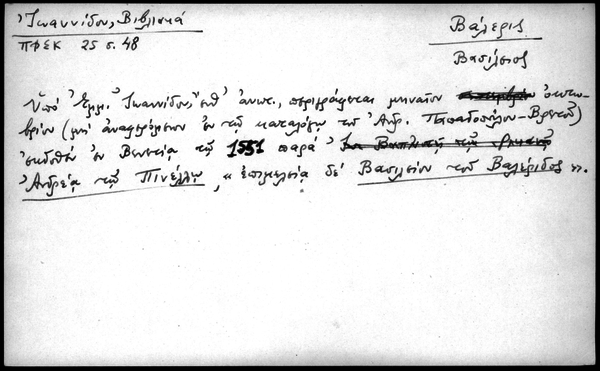 Ἰωαννίδου, Βιβλικά
ΠΦΣΚ 25 σ. 48
Βάλερις
Βασίλειος
Ὑπό Ἐμμ. Ἰωαννίδου, ἔνθ' ἀνωτ., περιγράφεται μηναῖον ὀκτω-
βρίου (μή ἀναφερόμενον ἐν τῷ καταλόγῳ τοῦ Ἀνδρ. Παπαδοπούλου-Βρετοῦ)
ἐκδοθέν ἐν Βενετίᾳ τῷ 1551 παρά
Ἀνδρέᾳ τῷ Πινέλλῳ, "ἐπιμελείᾳ δέ Βασιλείου τοῦ Βαλέριδος".